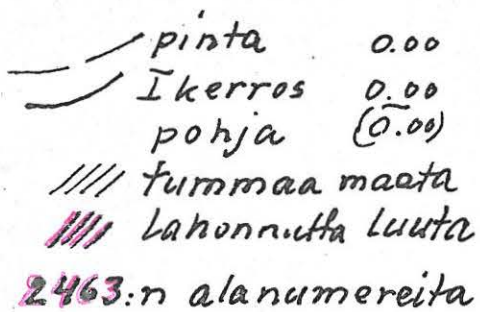 pinta 0.00
I kerros 0.00
pohja (0.00)
tummaa maata
Lahonnutta luuta
2463:n alanumereita